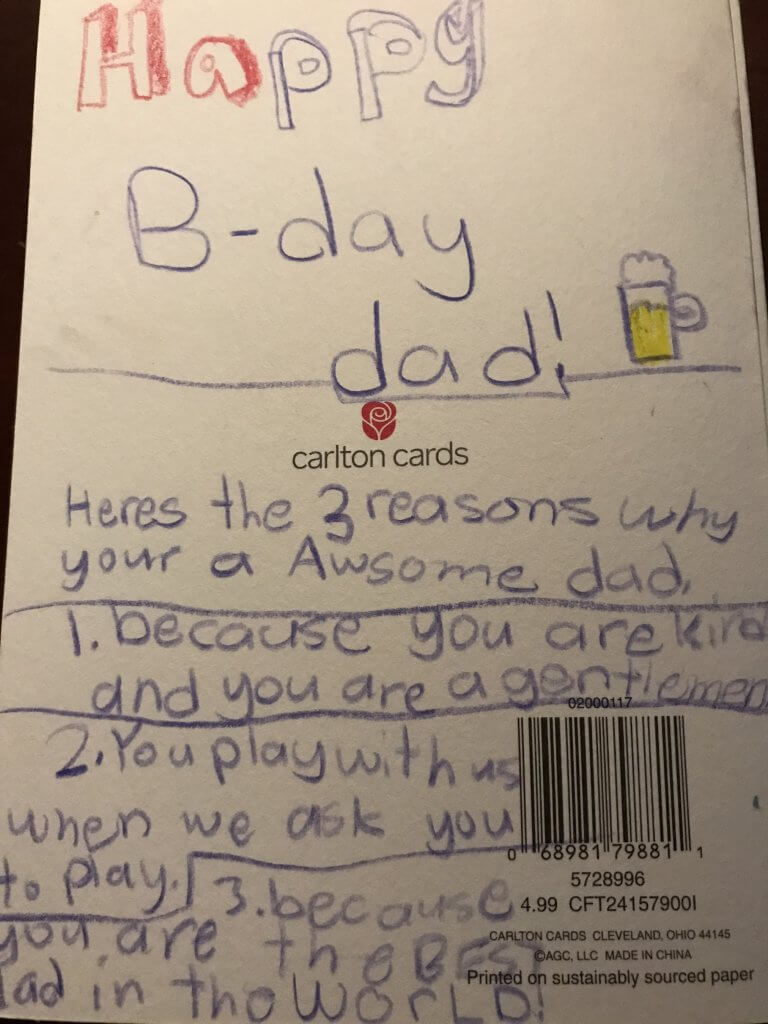 Happy
B-day
dad!
carlton cards
Heres the 3 reasons why
your a Awsome dad.
1. because you are kind
and you are a gentlemen
02000117
2. You play with us
when we ask you
to play.
0 68981 79881 1
5728996
3. because
4.99 CFT24157900I
you are the BEST
CARLTON CARDS CLEVELAND, OHIO 44145
©AGC, LLC MADE IN CHINA
Printed on sustainably sourced paper
dad in the WORLD!